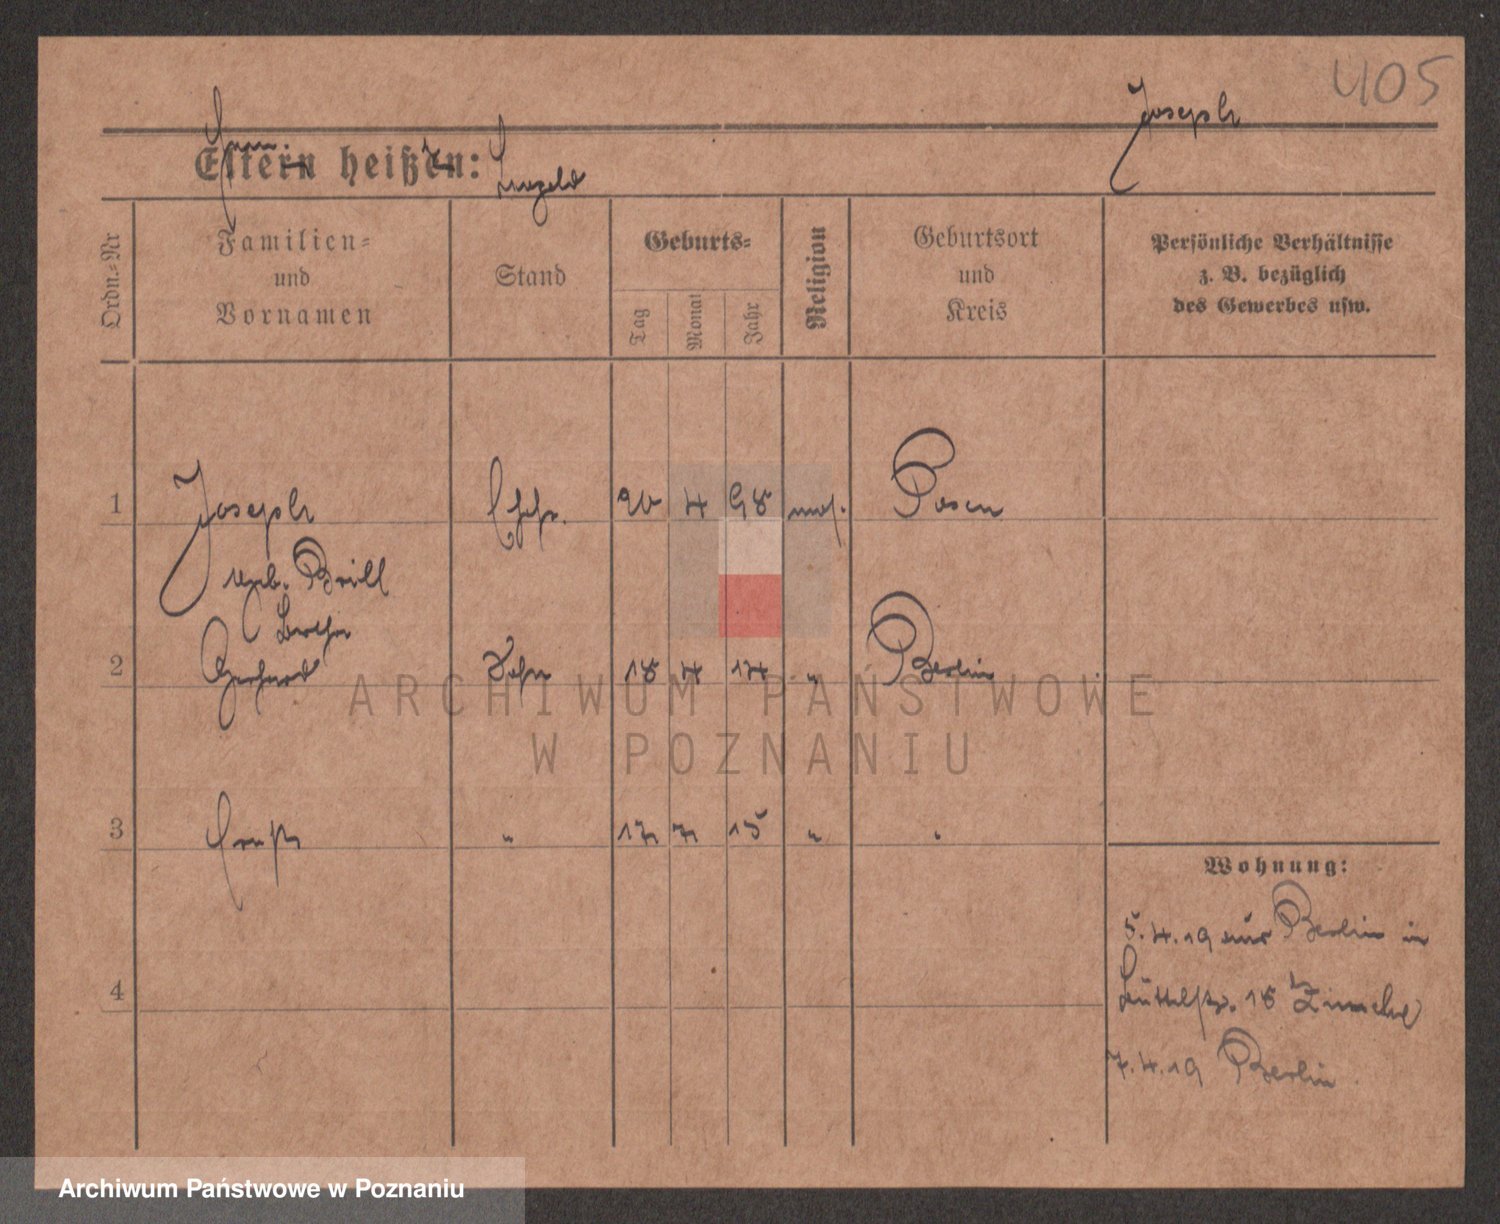 405
Joseph
Eltern heißen:
Ordn.=Nr
Familien=
und
Vornamen
Stand
Geburts=
Tag
Monat
Jahr
Religion
Geburtsort
und
Kreis
Persönliche Verhältnisse
z. B. bezüglich
des Gewerbes usw.
1 Joseph Ehefr. 20 4 98 mos. Posen
geb. Brill
Bertha
2 Gerhard Sohn 18 4 14 " Berlin
3 Ernst " 17 7 15 " "
Wohnung:
5.4.19 aus Berlin in
18 b
7.4.19 Berlin
4
ARCHIWUM PAŃSTWOWE
W POZNANIU
Archiwum Państwowe w Poznaniu